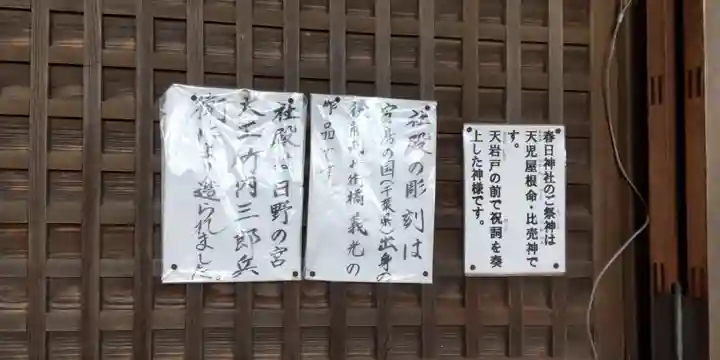 春日神社のご祭神は
天児屋根命・比売神で
す。
天岩戸の前で祝詞を奏
上した神様です。
社殿の彫刻は
の国(千葉県)出身の
義光の
作品です
社殿は日野の宮
大工
三郎兵
衛によ造られました。